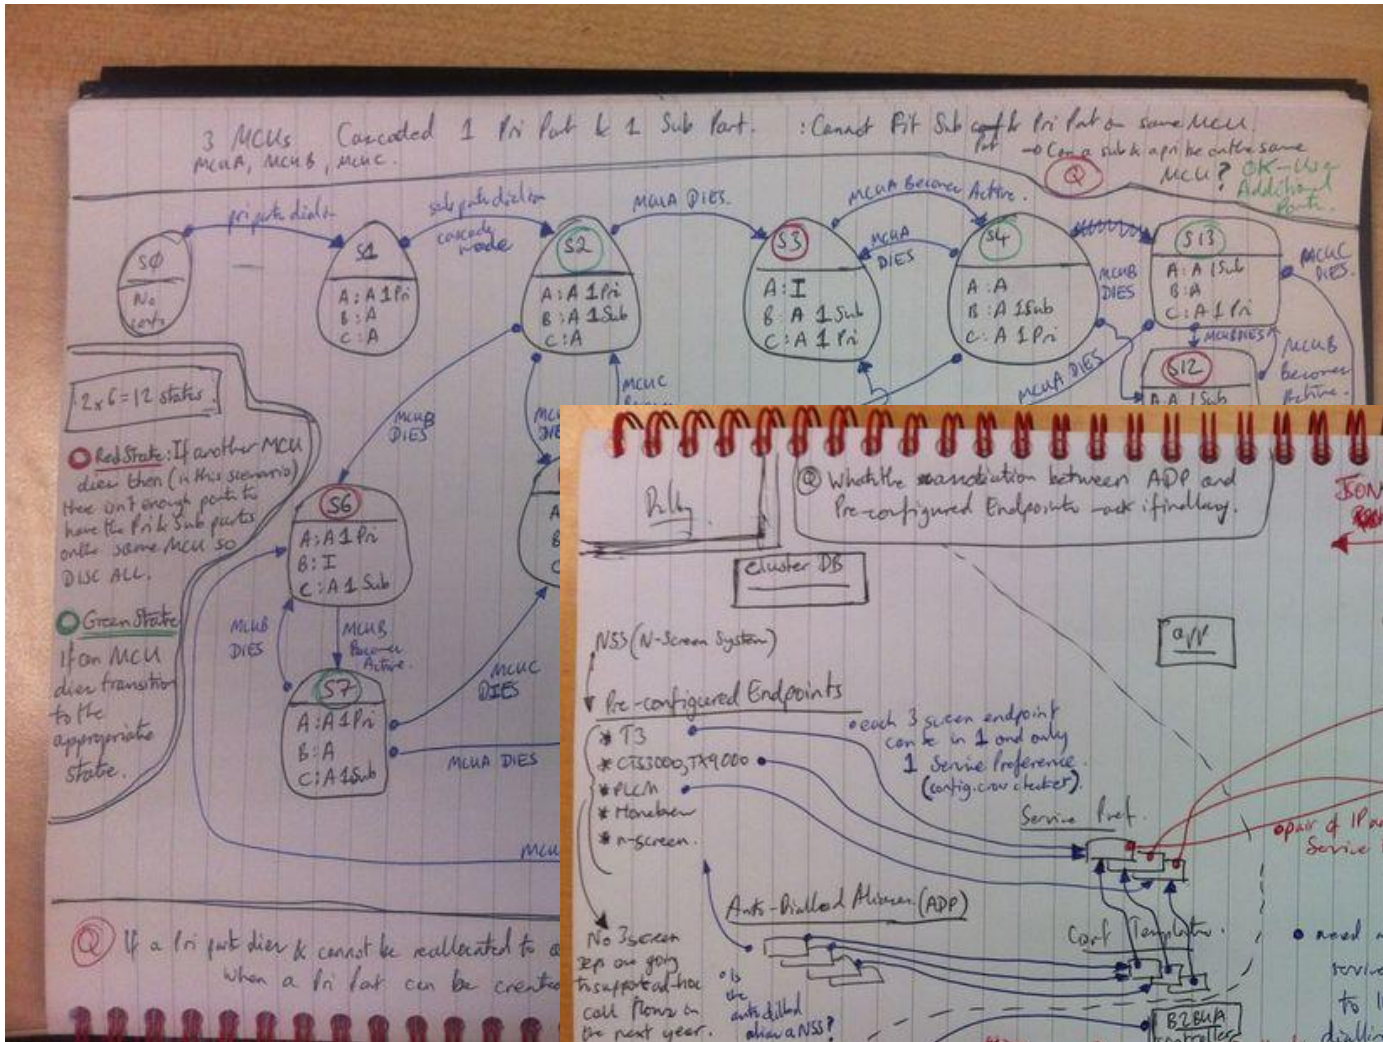 3 MCUs Cascaded 1 Pri Part & 1 Sub Part. : Cannot Fit Sub & Pri Part on same MCU.
MCUA, MCUB, MCUC.
Can a sub & a pri be on the same
MCU? OK-Use
Additional
Ports.
Q
pri part dials in
sub part dials in
cascade
mode
MCUA DIES.
MCUA Becomes Active.
MCUA
DIES
MCUB
DIES
MCUC
DIES.
SØ
No
S1
A: A 1 Pri
B: A
C: A
S2
A: A 1 Pri
B: A 1 Sub
C: A
S3
A: I
B: A 1 Sub
C: A 1 Pri
S4
A: A
B: A 1 Sub
C: A 1 Pri
S13
A: A 1 Sub
B: A
C: A 1 Pri
MCUB DIES
MCUA DIES
S12
A: A 1 Sub
MCUB
becomes
Active.
2 x 6 = 12 states.
Red State: If another MCU
dies then (in this scenario)
there isn't enough ports to
have the Pri & Sub parts
on the same MCU so
DISC ALL.
Green State
If an MCU
dies transition
to the
appropriate
state.
MCUB
DIES
MCUC
S6
A: A 1 Pri
B: I
C: A 1 Sub
MCUB
DIES
MCUB
Becomes
Active.
MCUC
DIES
S7
A: A 1 Pri
B: A
C: A 1 Sub
MCUA DIES
Q If a Pri part dies & cannot be reallocated to
when a Pri Part can be created
Q What's the between ADP and
Pre-configured Endpoints - ask if
Cluster DB
app
NSS (N-Screen System)
Pre-configured Endpoints
* T3
* CTS3000, TX9000
* PLCM
* Homebrew
* n-screen.
• each 3 screen endpoint
can be in 1 and only
1 Service Preference.
(config. cross checker).
Service Pref.
• pair of IP
Service
Auto-Dialled Aliases (ADP)
Conf Templates.
No 3 screen
are going
to support ad-hoc
call flows in
the next year.
• is
the
auto dialled
alias a NSS?
• need
service
to
B2BUA
controller